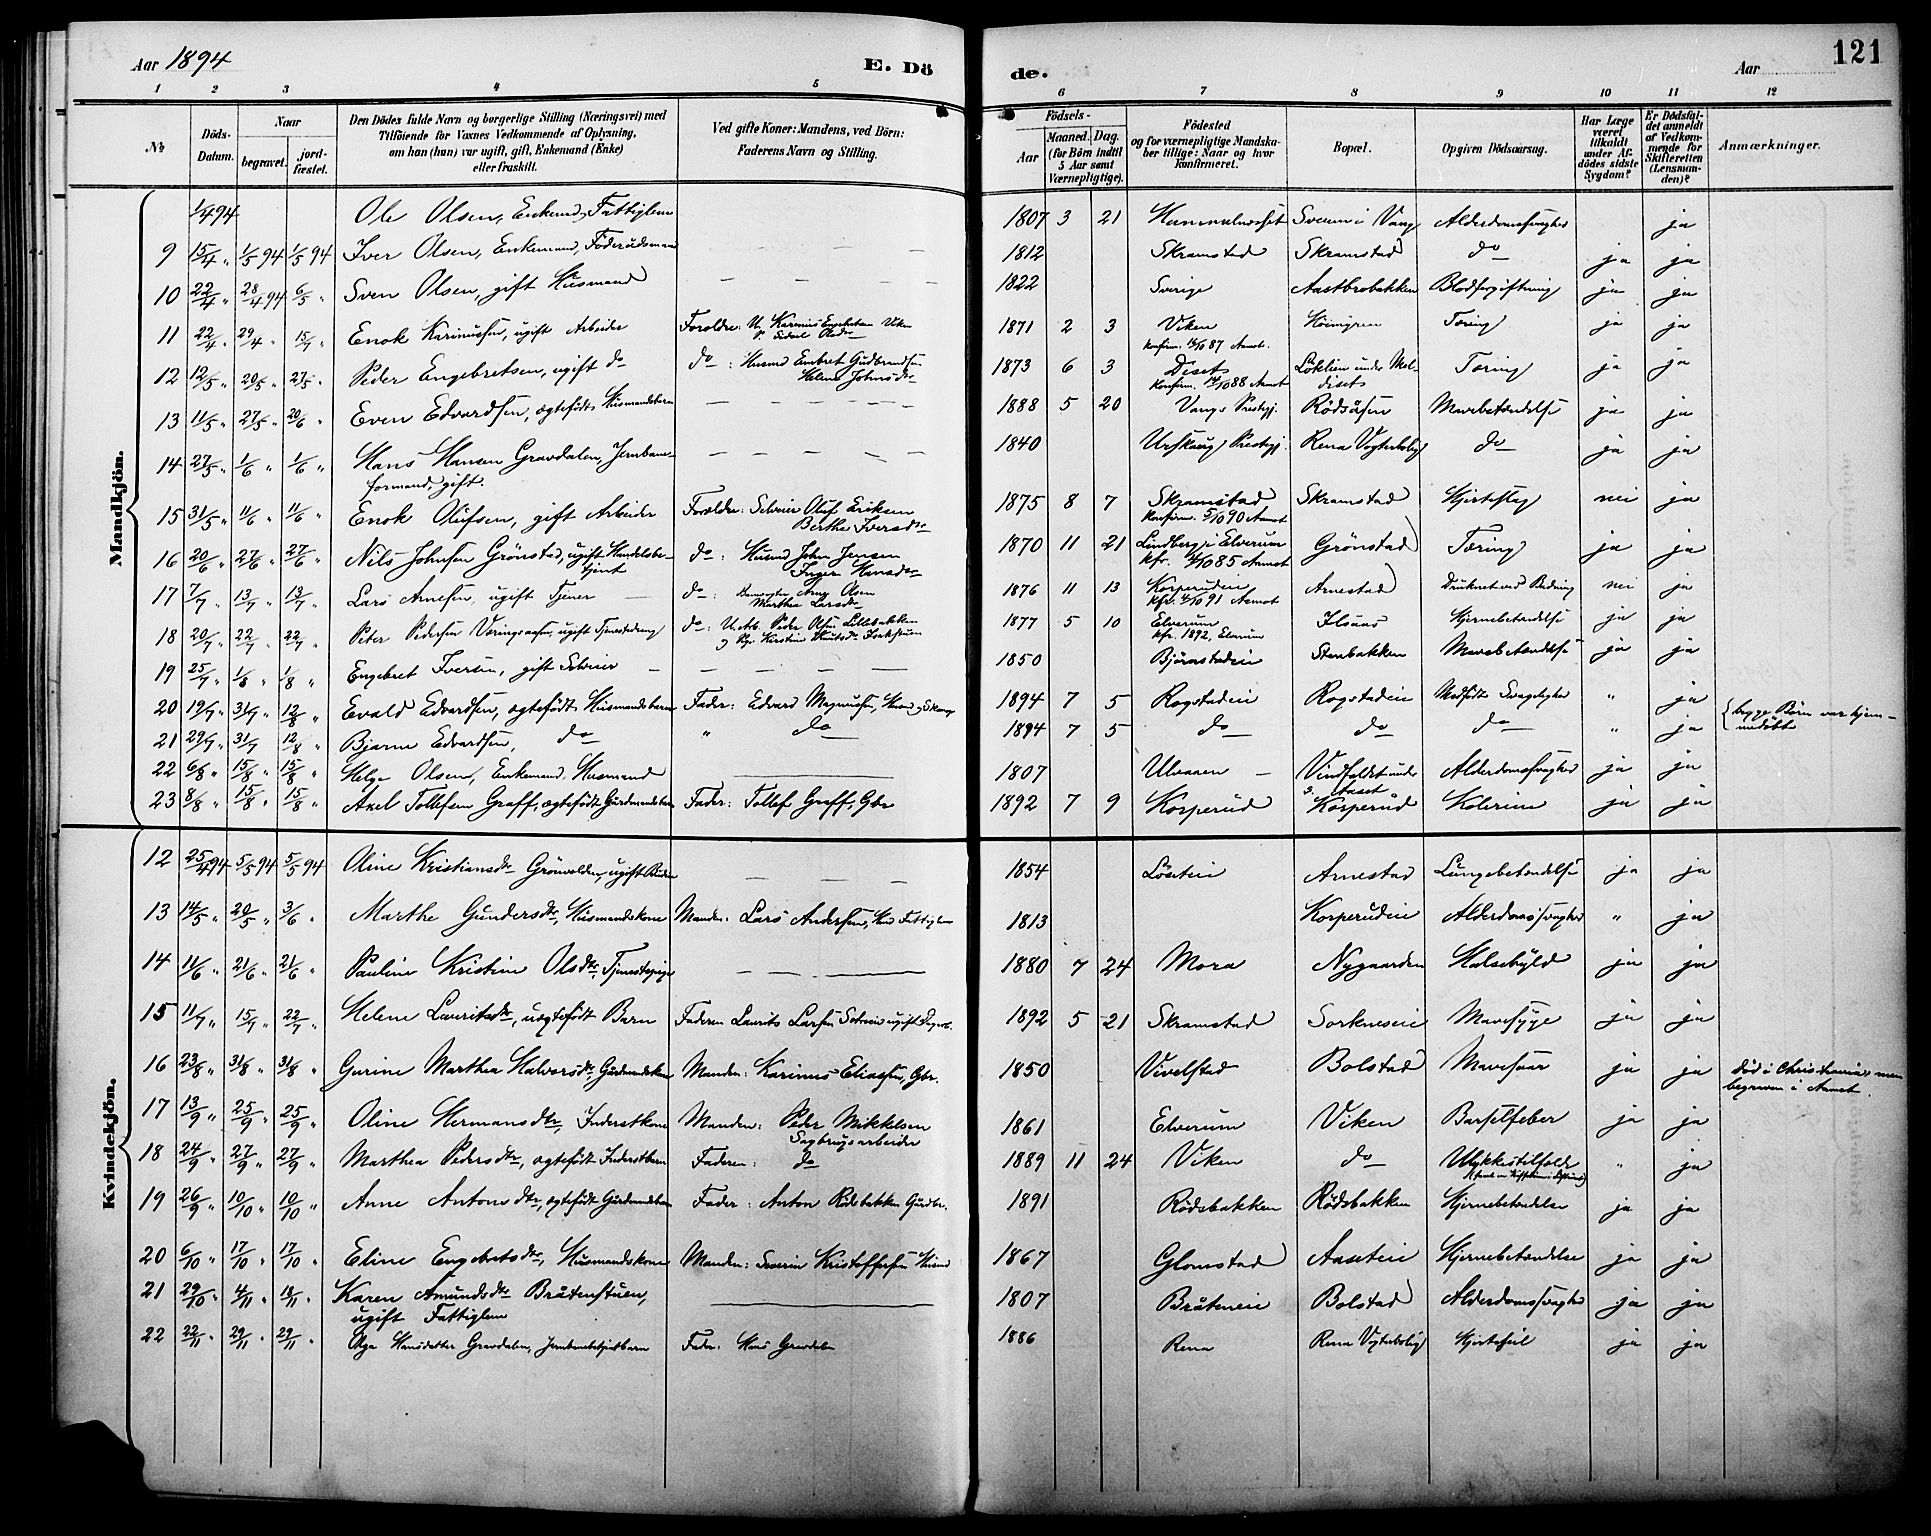 Aar 1894
E. Dö
de.
Aar
121
1 2 3 4 5 6 7 8 9 10 11 12
No
Döds-Datum.
Naar
begravet.
jord-fæstet.
Den Dödes fulde Navn og borgerlige Stilling (Næringsvei) med
Tilföiende for Voxnes Vedkommende af Oplysning,
om han (hun) var ugift, gift, Enkemand (Enke)
eller fraskilt.
Ved gifte Koner: Mandens, ved Börn:
Faderens Navn og Stilling.
Födsels-
Aar
Maaned. Dag.
(for Börn indtil
5 Aar samt
Værnepligtige).
Födested
og for værnepligtige Mandska-
ber tillige: Naar og hvor
konfirmeret.
Bopæl.
Opgiven Dödsaarsag.
Har Læge
været
tilkaldt
under Af-
dödes sidste
Sygdom?
Er Dödsfal-
det anmeldt
af Vedkom-
mende for
Skifteretten
(Lensman-
den)?
Anmærkninger.
Mandkjön.
1/4 94 Ole Olsen, Enkemd, Fattiglem 1807 3 21 Sveum i Vang Alderdomssvaghed ja
9 15/4 " 1/5 94 1/5 94 Iver Olsen, Enkemand, Föderaadsmand — — — 1812 Skramstad Skramstad do ja ja
10 22/4 " 28/4 94 6/5 " Sven Olsen, gift Husmand — — — 1822 Sverige Aastbrobakken Blodforgiftning ja ja
11 22/4 " 29/4 " 15/7 " Enok Karinusen, ugift Arbeider Foreldre: U. Karinus Engebretsen Viken 1871 2 3 Viken Tæring ja ja
konfirm. 16/10 87 Aamot.
12 12/5 " 20/5 " 27/5 " Peder Engebretsen, ugift do do: Husmd Embret Gudbrandsen 1873 6 3 Diset Löklien under Mel- Tæring ja ja
Helene Johnsdtr konfirm. 14/10 88 Aamot diset
13 11/5 " 27/5 " 20/6 " Even Edvardsen, ægtefödt Husmandsbarn — — — 1888 5 20 Vangs Prestgj. Rödsåsen Mavebetændelse ja ja
14 27/5 " 1/6 " 1/6 " Hans Hansen Gravdalen, Jernbane- — — — 1840 Urskaug Prestgj. Rena Vogterbolig do ja ja
formand, gift.
15 31/5 " 11/6 " 11/6 " Enok Olufsen, gift Arbeider Forældre: Selveier Oluf Eriksen 1875 8 7 Skramstad Skramstad Hjerteslag nei ja
Berthe Iversdtr konfirm. 5/10 90 Aamot
16 20/6 " 27/6 " 27/6 " Nils Johnsen Grönstad, ugift Handelsbe- do: Husmd John Jensen 1870 11 21 Lindberg i Elverum Grönstad Tæring ja ja
tjent Inger Hansdtr kfr. 4/10 85 Aamot
17 7/7 " 13/7 " 13/7 " Lars Arnesen, ugift Tjener — do: Arne Olsen 1876 11 13 Korperudeie Arnestad Druknet ved Badning nei ja
Marthea Larsdtr kfr. 4/10 91 Aamot
18 20/7 " 22/7 " 22/7 " Peter Pedersen Væringsaasen, ugift Tjenestedreng do: U. Arb. Peder Olsen Lillebakken 1877 5 10 Elverum Ilsaas Hjernebetændelse ja ja
kfr. 1892, Elverum
19 25/7 " 1/8 " 1/8 " Engebret Iversen, gift Selveier — — — — 1850 Björnstadeie Stenbakken Mavebetændelse ja ja
20 19/7 " 31/7 " 12/8 " Evald Edvardsen, ægtefödt Husmandsbarn Fader: Edvard Magnusen, Husmd 1894 7 5 Rogstadeie Rogstadeie Medfödt Svagelighed " ja begge Börn var hjem-
21 29/7 " 31/7 12/8 " Bjarne Edvardsen, do " do 1894 7 5 do do do " ja medöbte
22 6/8 " 15/8 " 15/8 " Helge Olsen, Enkemand, Husmand 1807 Ulvaaen — Vindfaldet under Alderdomssvaghed ja ja
s. Aaset
23 8/8 " 15/8 " 15/8 " Axel Tollefsen Graff, ægtefödt Gårdmandsbarn Fader: Tollef Graff, Gbr 1892 7 9 Korperud Korperud Kolerine ja ja
Kvindekjön.
12 25/4 94 5/5 94 5/5 94 Oline Kristiansdtr Grönvolden, ugift — — — 1854 Löseteie Arnestad Lungebetændelse ja ja
13 14/5 " 20/5 " 3/6 " Marthe Gundersdtr, Husmandskone Manden: Lars Andersen, Hmd Fattiglem 1813 Korperudeie Alderdomssvaghed " ja
14 11/6 " 21/6 " 21/6 " Pauline Kristine Olsdtr, Tjenestepige — — — 1880 7 24 Mora Nygaarden Halsebyld ja ja
15 11/7 " 15/7 " 22/7 " Helene Lauritsdtr, uægtefödt Barn Faderen Laurits Larsen Selveier ugift 1892 5 21 Skramstad Sorkneseie Mavesyge ja ja
16 23/8 " 31/8 " 31/8 " Gurine Marthea Halvorsdtr, Gårdmandskone Manden: Karinus Eliassen, Gbr. 1850 Vivelstad Bolstad Mavesaar ja ja död i Christiania men
begraven i Aamot.
17 13/9 " 25/9 " 25/9 " Oline Hermansdtr, Inderstkone Manden: Peder Mikkelsen 1861 Elverum Viken Barselfeber ja ja
Sagbrugsarbeider
18 24/9 " 27/9 " 27/9 " Marthea Pedersdtr, ægtefödt Inderstbarn Faderen: do 1889 11 24 Viken do Ulykkestilfælde " ja
19 26/9 " 10/10 " 10/10 " Anne Antonsdtr, ægtefödt Gårdmandsbarn Fader: Anton Rödsbakken Gårdbr. 1891 Rödsbakken Rödsbakken Hjernebetændelse ja ja
20 6/10 " 17/10 " 17/10 " Eline Engebretsdtr, Husmandskone Manden: Severin Kristoffersen Husmd 1867 Glomstad Aaseteie Hjernebetændelse ja ja
21 29/10 " 4/11 " 18/11 " Karen Amundsdtr Bråtenstuen, 1807 Bråteneie Bolstad Alderdomssvaghed ja ja
ugift Fattiglem
22 22/11 " 29/11 " 29/11 " Olga Hansdatter Gravdalen, Jernbanebetjentbarn Fader: Hans Gravdalen 1886 Rena Rena Vogterbolig Hjertefeil ja ja